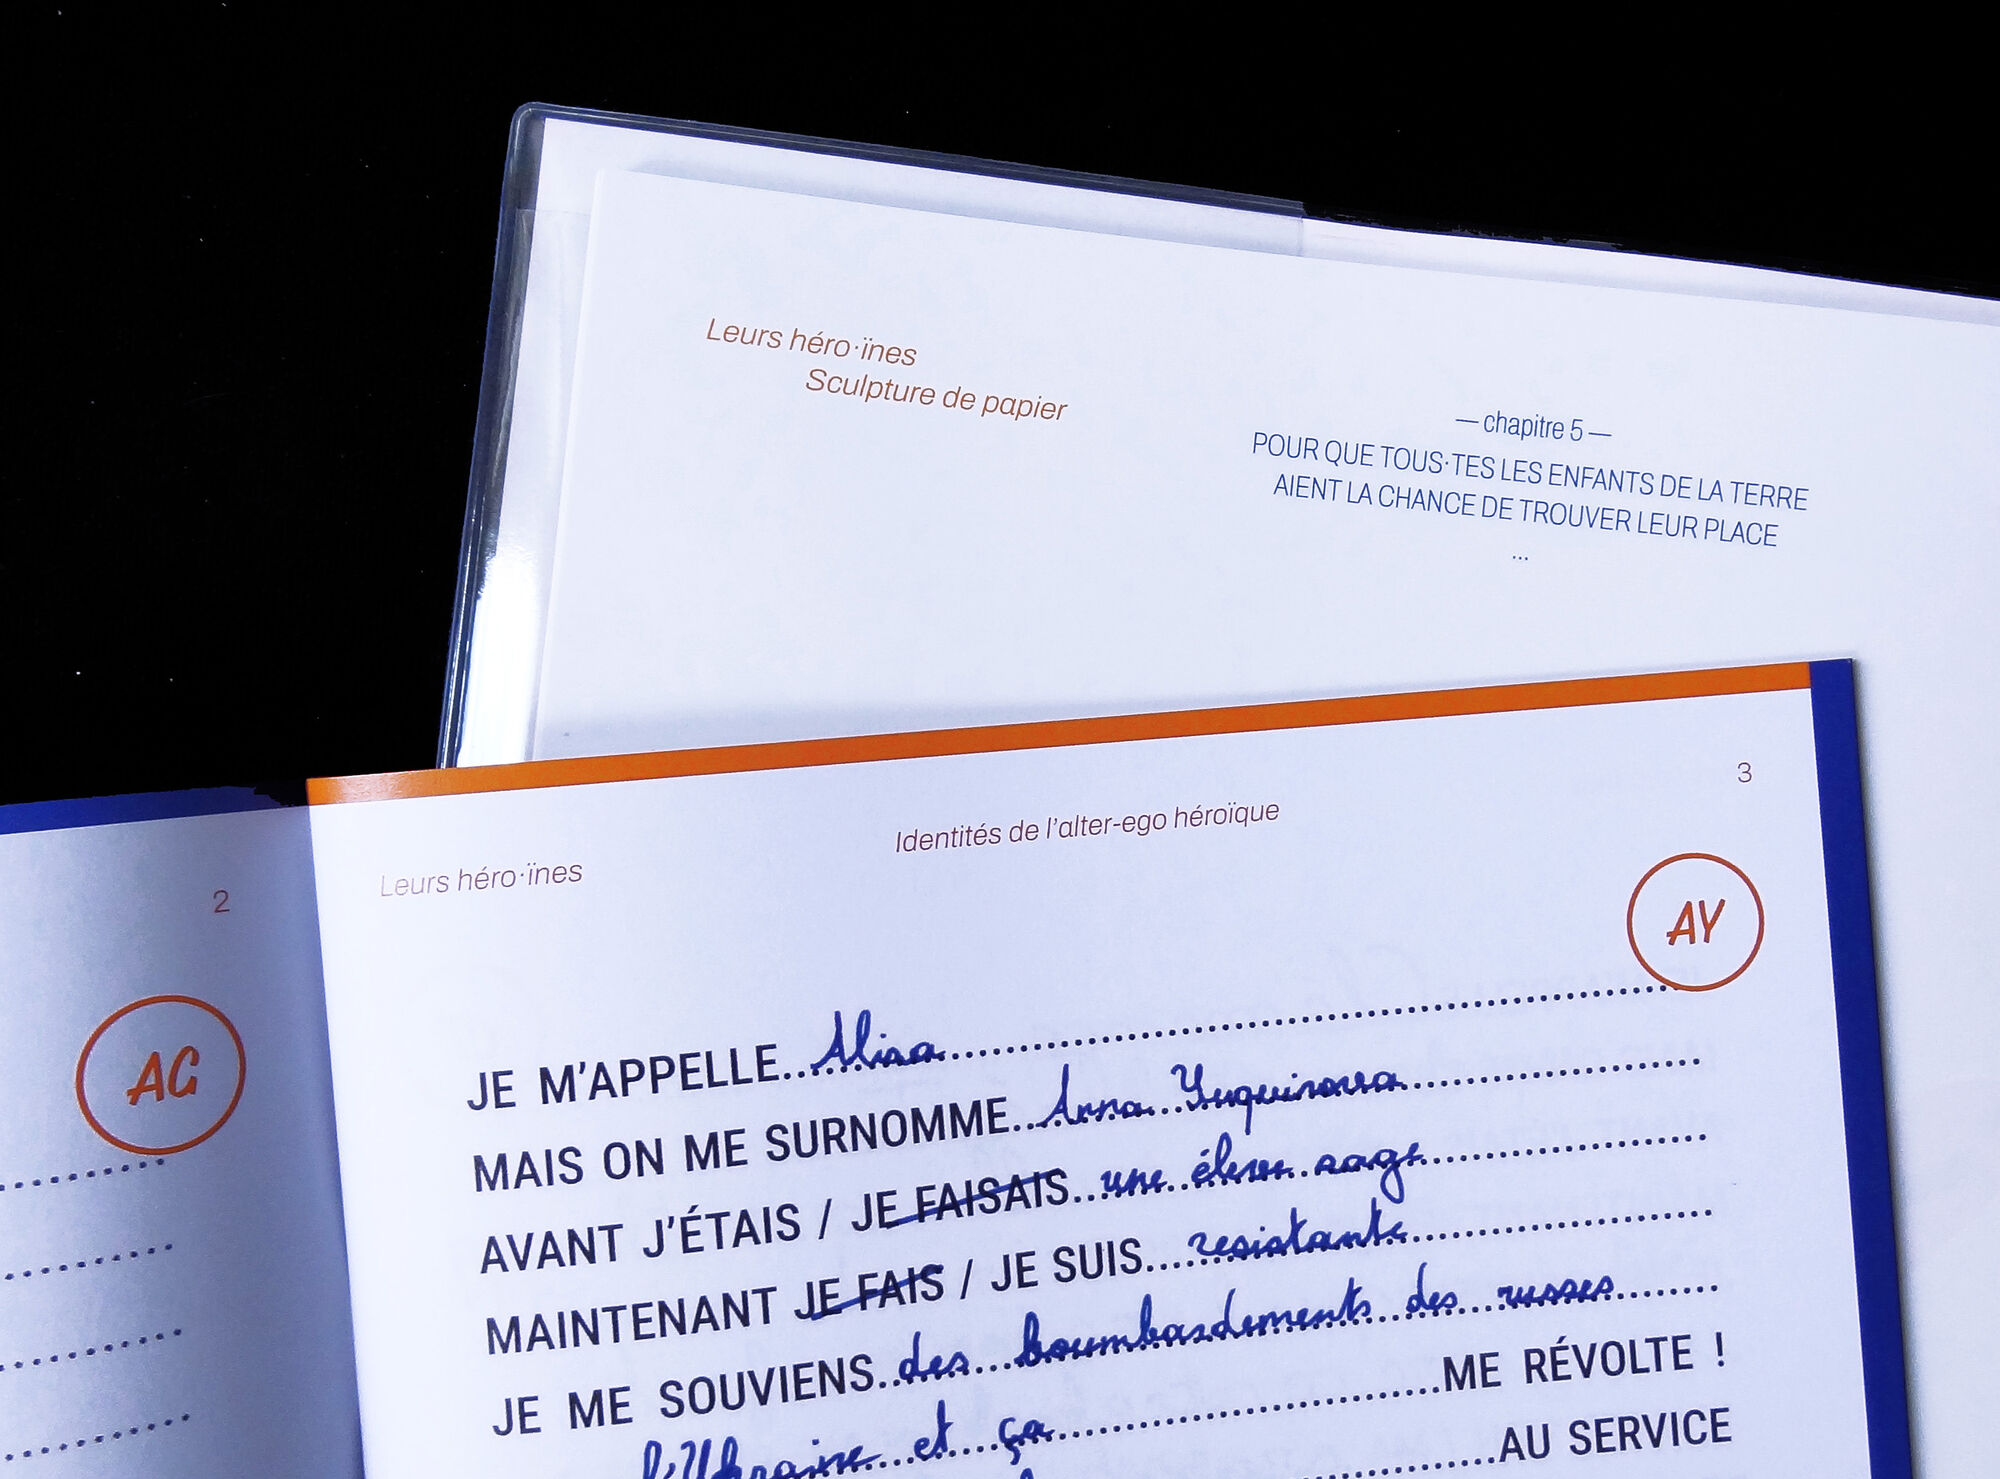 Leurs héro·ïnes
Sculpture de papier
— chapitre 5 —
POUR QUE TOUS·TES LES ENFANTS DE LA TERRE
AIENT LA CHANCE DE TROUVER LEUR PLACE
...
2
AG
3
Identités de l'alter-ego héroïque
Leurs héro·ïnes
AY
JE M'APPELLE...Alisa
MAIS ON ME SURNOMME...Anna
AVANT J'ÉTAIS / JE FAISAIS...une éleve sage
MAINTENANT JE FAIS / JE SUIS...resistante
JE ME SOUVIENS...des boumbardements des russes
l'Ukraine et ça...ME RÉVOLTE !
...AU SERVICE